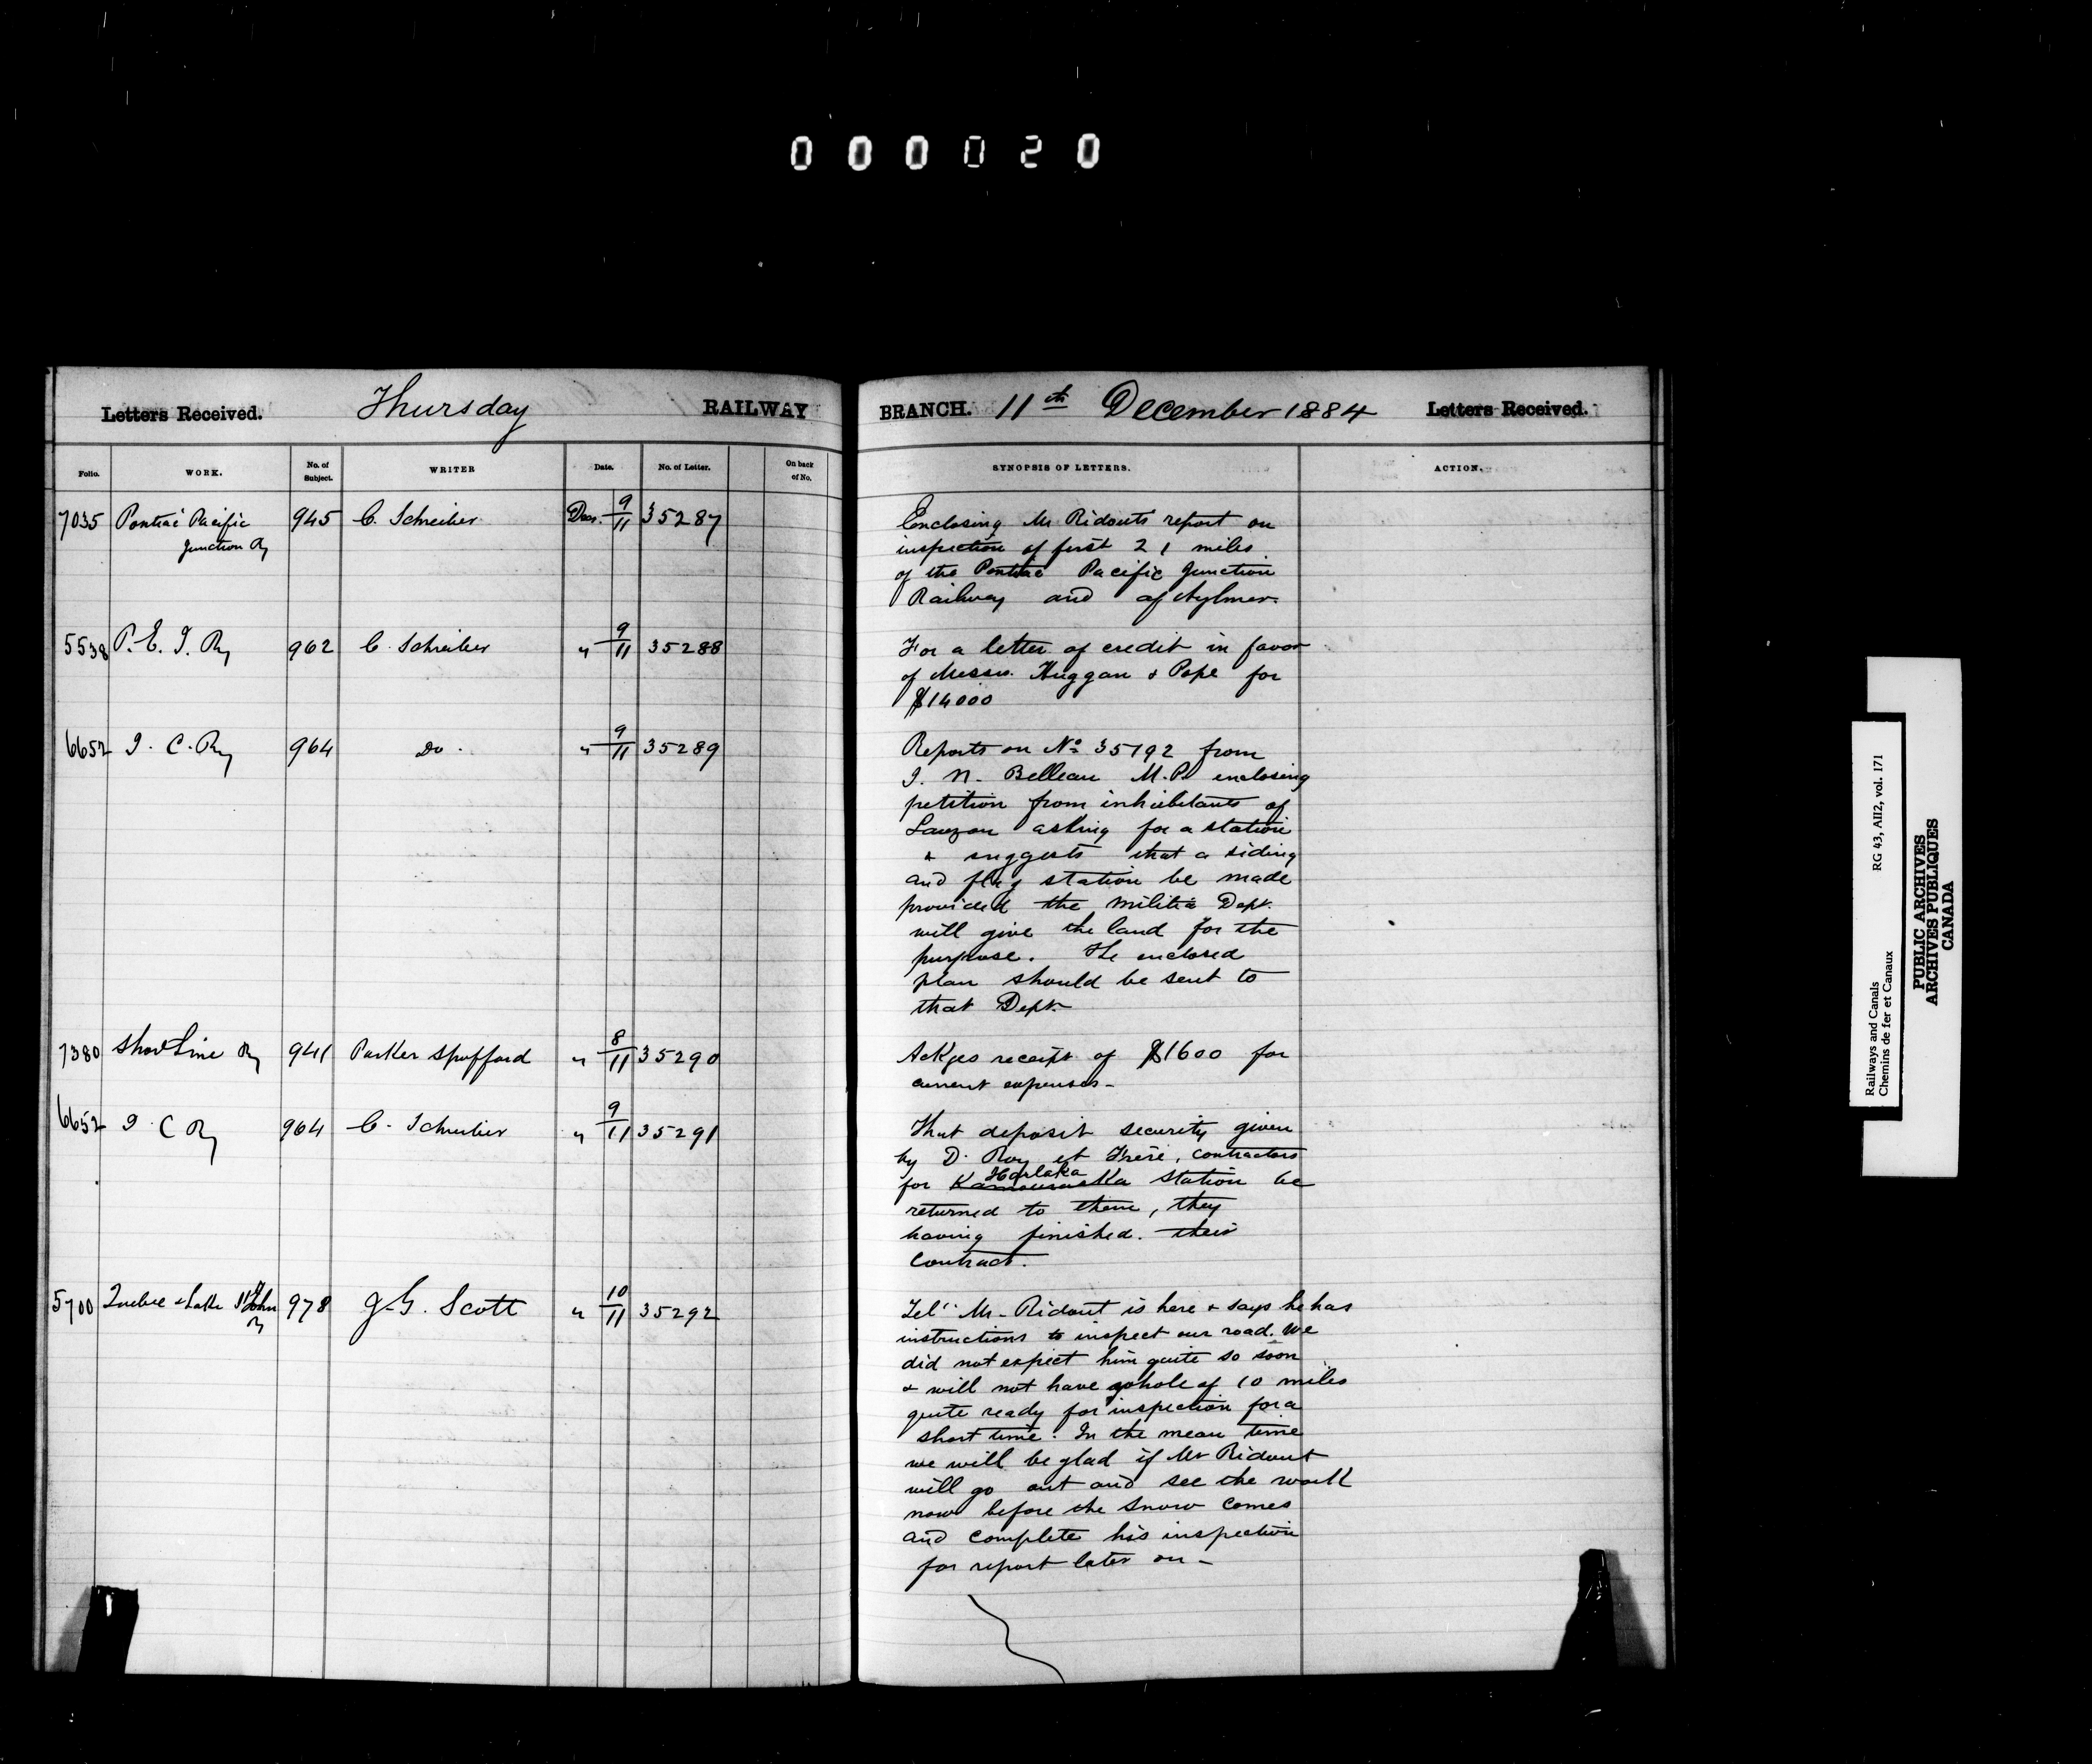 000020
Letters Received. Thursday RAILWAY BRANCH. 11th December 1884 Letters Received.
Folio. WORK. No. of Subject. WRITER Date. No. of Letter. On back of No. SYNOPSIS OF LETTERS. ACTION.
7035 Pontiac Pacific 945 C. Schreiber Dec. 9/11 35287 Enclosing Mr Ridouts report on
Junction Ry inspection of first 21 miles
of the Pontiac Pacific Junction
Railway and of Aylmer.
5538 P. E. I. Ry 962 C. Schreiber " 9/11 35288 For a letter of credit in favor
of Messrs. Huggan & Pope for
$14000
6652 I. C. Ry 964 Do. " 9/11 35289 Reports on No 35192 from
I. N. Belleau M.P. enclosing
petition from inhabitants of
Lauzon asking for a station
& suggests that a siding
and flag station be made
provided the Militia Dept.
will give the land for the
purpose. The enclosed
plan should be sent to
that Dept.
7380 Short Line Ry 941 Parker Spofford " 8/11 35290 Ackges receipt of $1600 for
current expenses-
6652 I. C Ry 964 C. Schreiber " 9/11 35291 That deposit security given
by D. Roy et Frère, contractors
Harlaka
for Kamouraska station be
returned to them, they
having finished. their
contract.
5700 Quebec & Lake St John Ry 978 J. G. Scott " 10/11 35292 Tel: Mr. Ridout is here & says he has
instructions to inspect our road. We
did not expect him quite so soon
& will not have whole of 10 miles
quite ready for inspection for a
short time. In the mean time
we will be glad if Mr Ridout
will go out and see the work
now before the snow comes
and complete his inspection
for report later on -
Railways and Canals RG 43, AII2, vol. 171
Chemins de fer et Canaux
PUBLIC ARCHIVES
ARCHIVES PUBLIQUES
CANADA